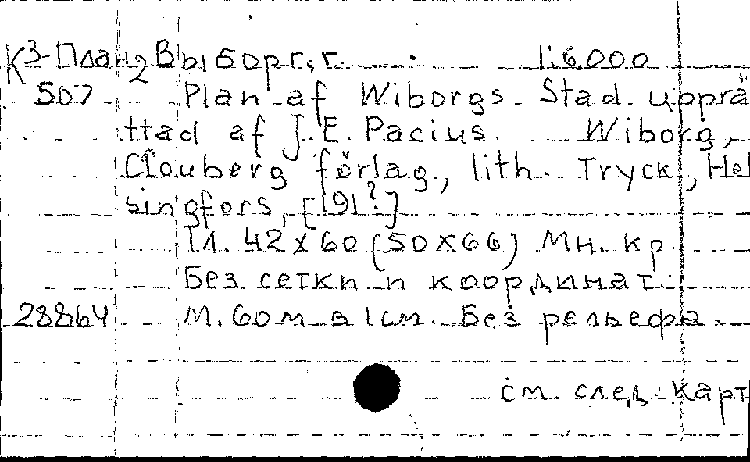 К3-План2 Выборг, г. 1:6000
507 Plan af Wiborgs Stad upprä
ttad af J.E. Pacius. Wiborg,
Clouberg förlag, lith. Tryck, Hel
singfors, [191?]
1 л. 42x60 (50x66) Мн. кр.
Без сетки и координат.
28864 М. 60м в 1см. Без рельефа.
см. след. карт